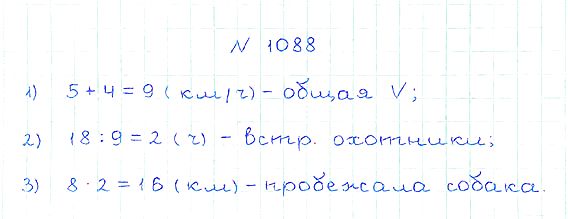 N 1088
1) 5 + 4 = 9 (км/ч) - общая V;
2) 18 : 9 = 2 (ч) - встр. охотники;
3) 8 · 2 = 16 (км) - пробежала собака.